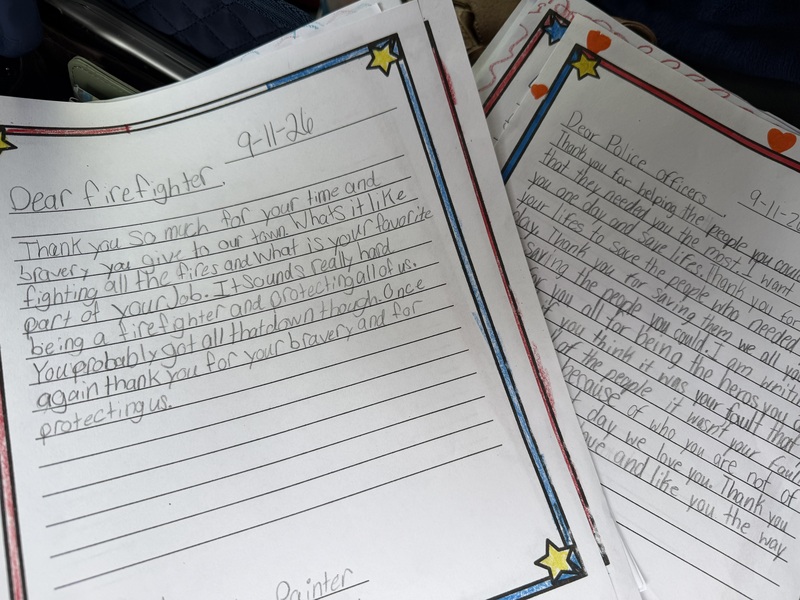 9-11-26
Dear firefighter,
Thank you so much for your time and
bravery you give to our town. Whats it like
fighting all the fires and What is your favorite
part of your Job. It Sounds really hard
being a firefighter and protecting all of us.
You probably got all that down though. Once
again thank you for your bravery and for
protecting us.
Painter
9-11-26
Dear Police officers
Thank you for helping the people you could
that they needed you the most. I want
you one day and save lifes. Thank you for
your lifes to save the people who needed
day. Thank you for saving them we all
saving the people you could. I am
you all for being the heros you
you think it was your fault that
of the people it wasn't your fault
because of who you are not of
day we love you. Thank you
and like you the way